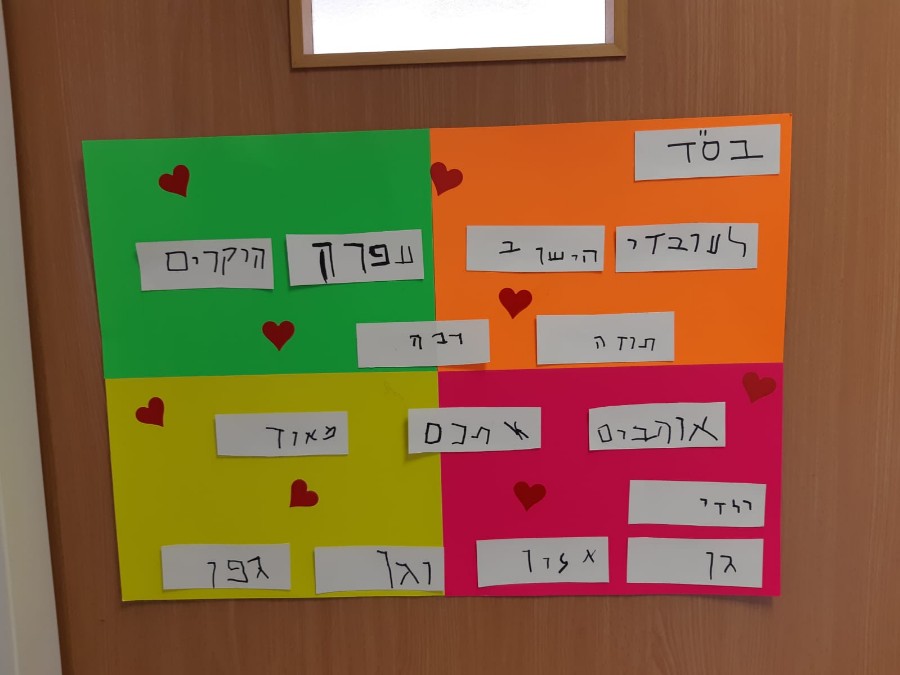 בס"ד
לעובדי הישוב עפרה היקרים
תודה רבה
אוהבים אתכם מאוד
ילדי
גן אלון וגן גפן